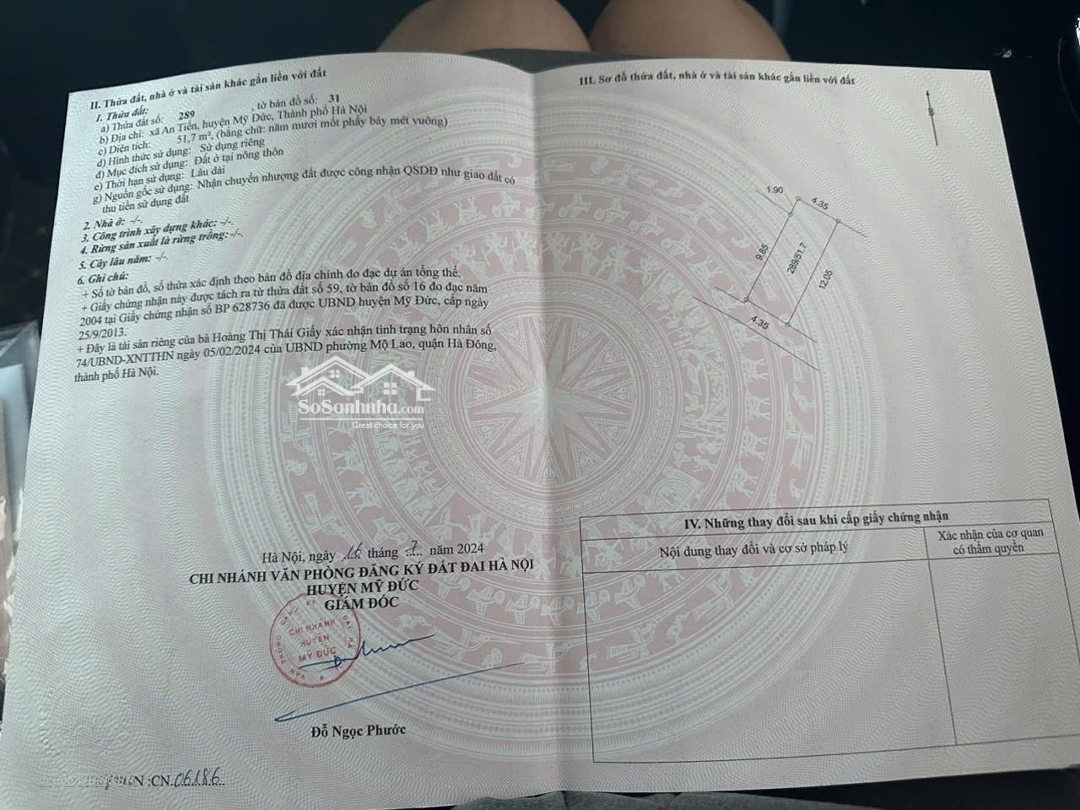 II. Thửa đất, nhà ở và tài sản khác gắn liền với đất
1. Thửa đất:
a) Thửa đất số: 289, tờ bản đồ số: 31
b) Địa chỉ: xã An Tiến, huyện Mỹ Đức, Thành phố Hà Nội
c) Diện tích: 51,7 m², (bằng chữ: năm mươi mốt phẩy bảy mét vuông)
d) Hình thức sử dụng: Sử dụng riêng
đ) Mục đích sử dụng: Đất ở tại nông thôn
e) Thời hạn sử dụng: Lâu dài
g) Nguồn gốc sử dụng: Nhận chuyển nhượng đất được công nhận QSDĐ như giao đất có
thu tiền sử dụng đất
2. Nhà ở: -/-
3. Công trình xây dựng khác: -/-
4. Rừng sản xuất là rừng trồng: -/-
5. Cây lâu năm: -/-
6. Ghi chú:
+ Số tờ bản đồ, số thửa xác định theo bản đồ địa chính đo đạc dự án tổng thể.
+ Giấy chứng nhận này được tách ra từ thửa đất số 59, tờ bản đồ số 16 đo đạc năm
2004 tại Giấy chứng nhận số BP 628736 đã được UBND huyện Mỹ Đức, cấp ngày
25/9/2013.
+ Đây là tài sản riêng của bà Hoàng Thị Thái Giấy xác nhận tình trạng hôn nhân số
74/UBND-XNTTHN ngày 05/02/2024 của UBND phường Mộ Lao, quận Hà Đông,
thành phố Hà Nội.
SoSanhnha.com
Great choice for you
Hà Nội, ngày 16 tháng 7 năm 2024
CHI NHÁNH VĂN PHÒNG ĐĂNG KÝ ĐẤT ĐAI HÀ NỘI
HUYỆN MỸ ĐỨC
GIÁM ĐỐC
CHI NHÁNH
HUYỆN
MỸ ĐỨC
Đỗ Ngọc Phước
:CN.06186
III. Sơ đồ thửa đất, nhà ở và tài sản khác gắn liền với đất
1.90
4.35
9.85
289/51.7
12.05
4.35
IV. Những thay đổi sau khi cấp giấy chứng nhận
Nội dung thay đổi và cơ sở pháp lý
Xác nhận của cơ quan
có thẩm quyền